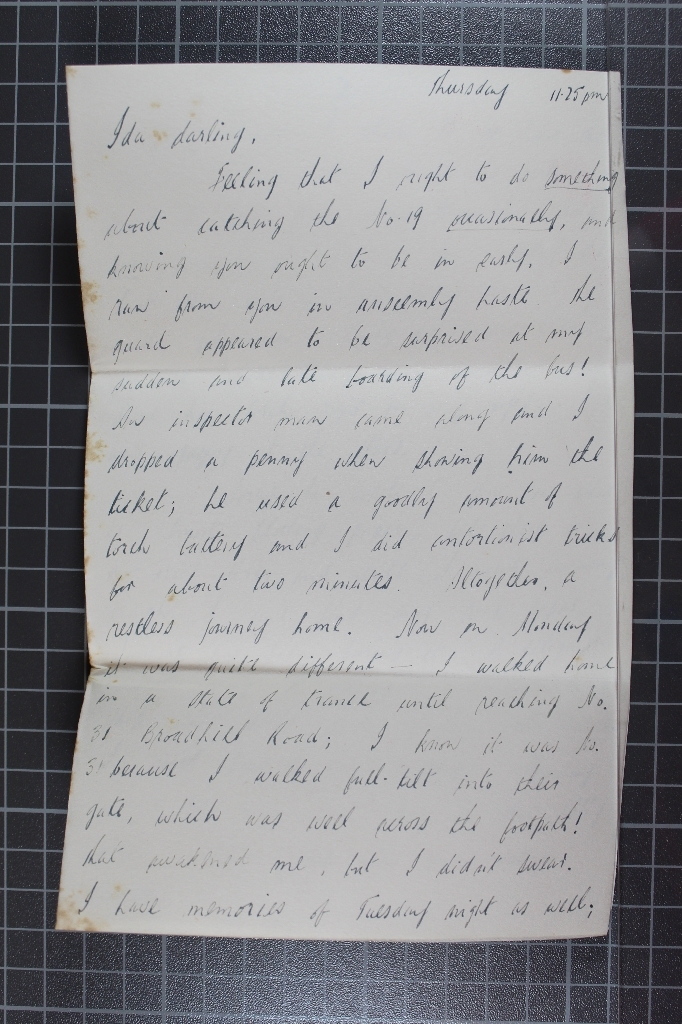 Thursday 11.25 pm
Ida darling,
Feeling that I ought to do something
about catching the No. 19 occasionally, and
knowing you ought to be in early, I
ran from you in unseemly haste. The
guard appeared to be surprised at my
sudden and late boarding of the bus!
An inspector man came along and I
dropped a penny when showing him the
ticket; he used a goodly amount of
torch battery and I did contortionist tricks
for about two minutes. Altogether, a
restless journey home. Now on Monday
it was quite different — I walked home
in a state of trance until reaching No.
31 Broadhill Road; I know it was No.
31 because I walked full-tilt into their
gate, which was well across the footpath!
That awakened me, but I didn't swear.
I have memories of Tuesday night as well;